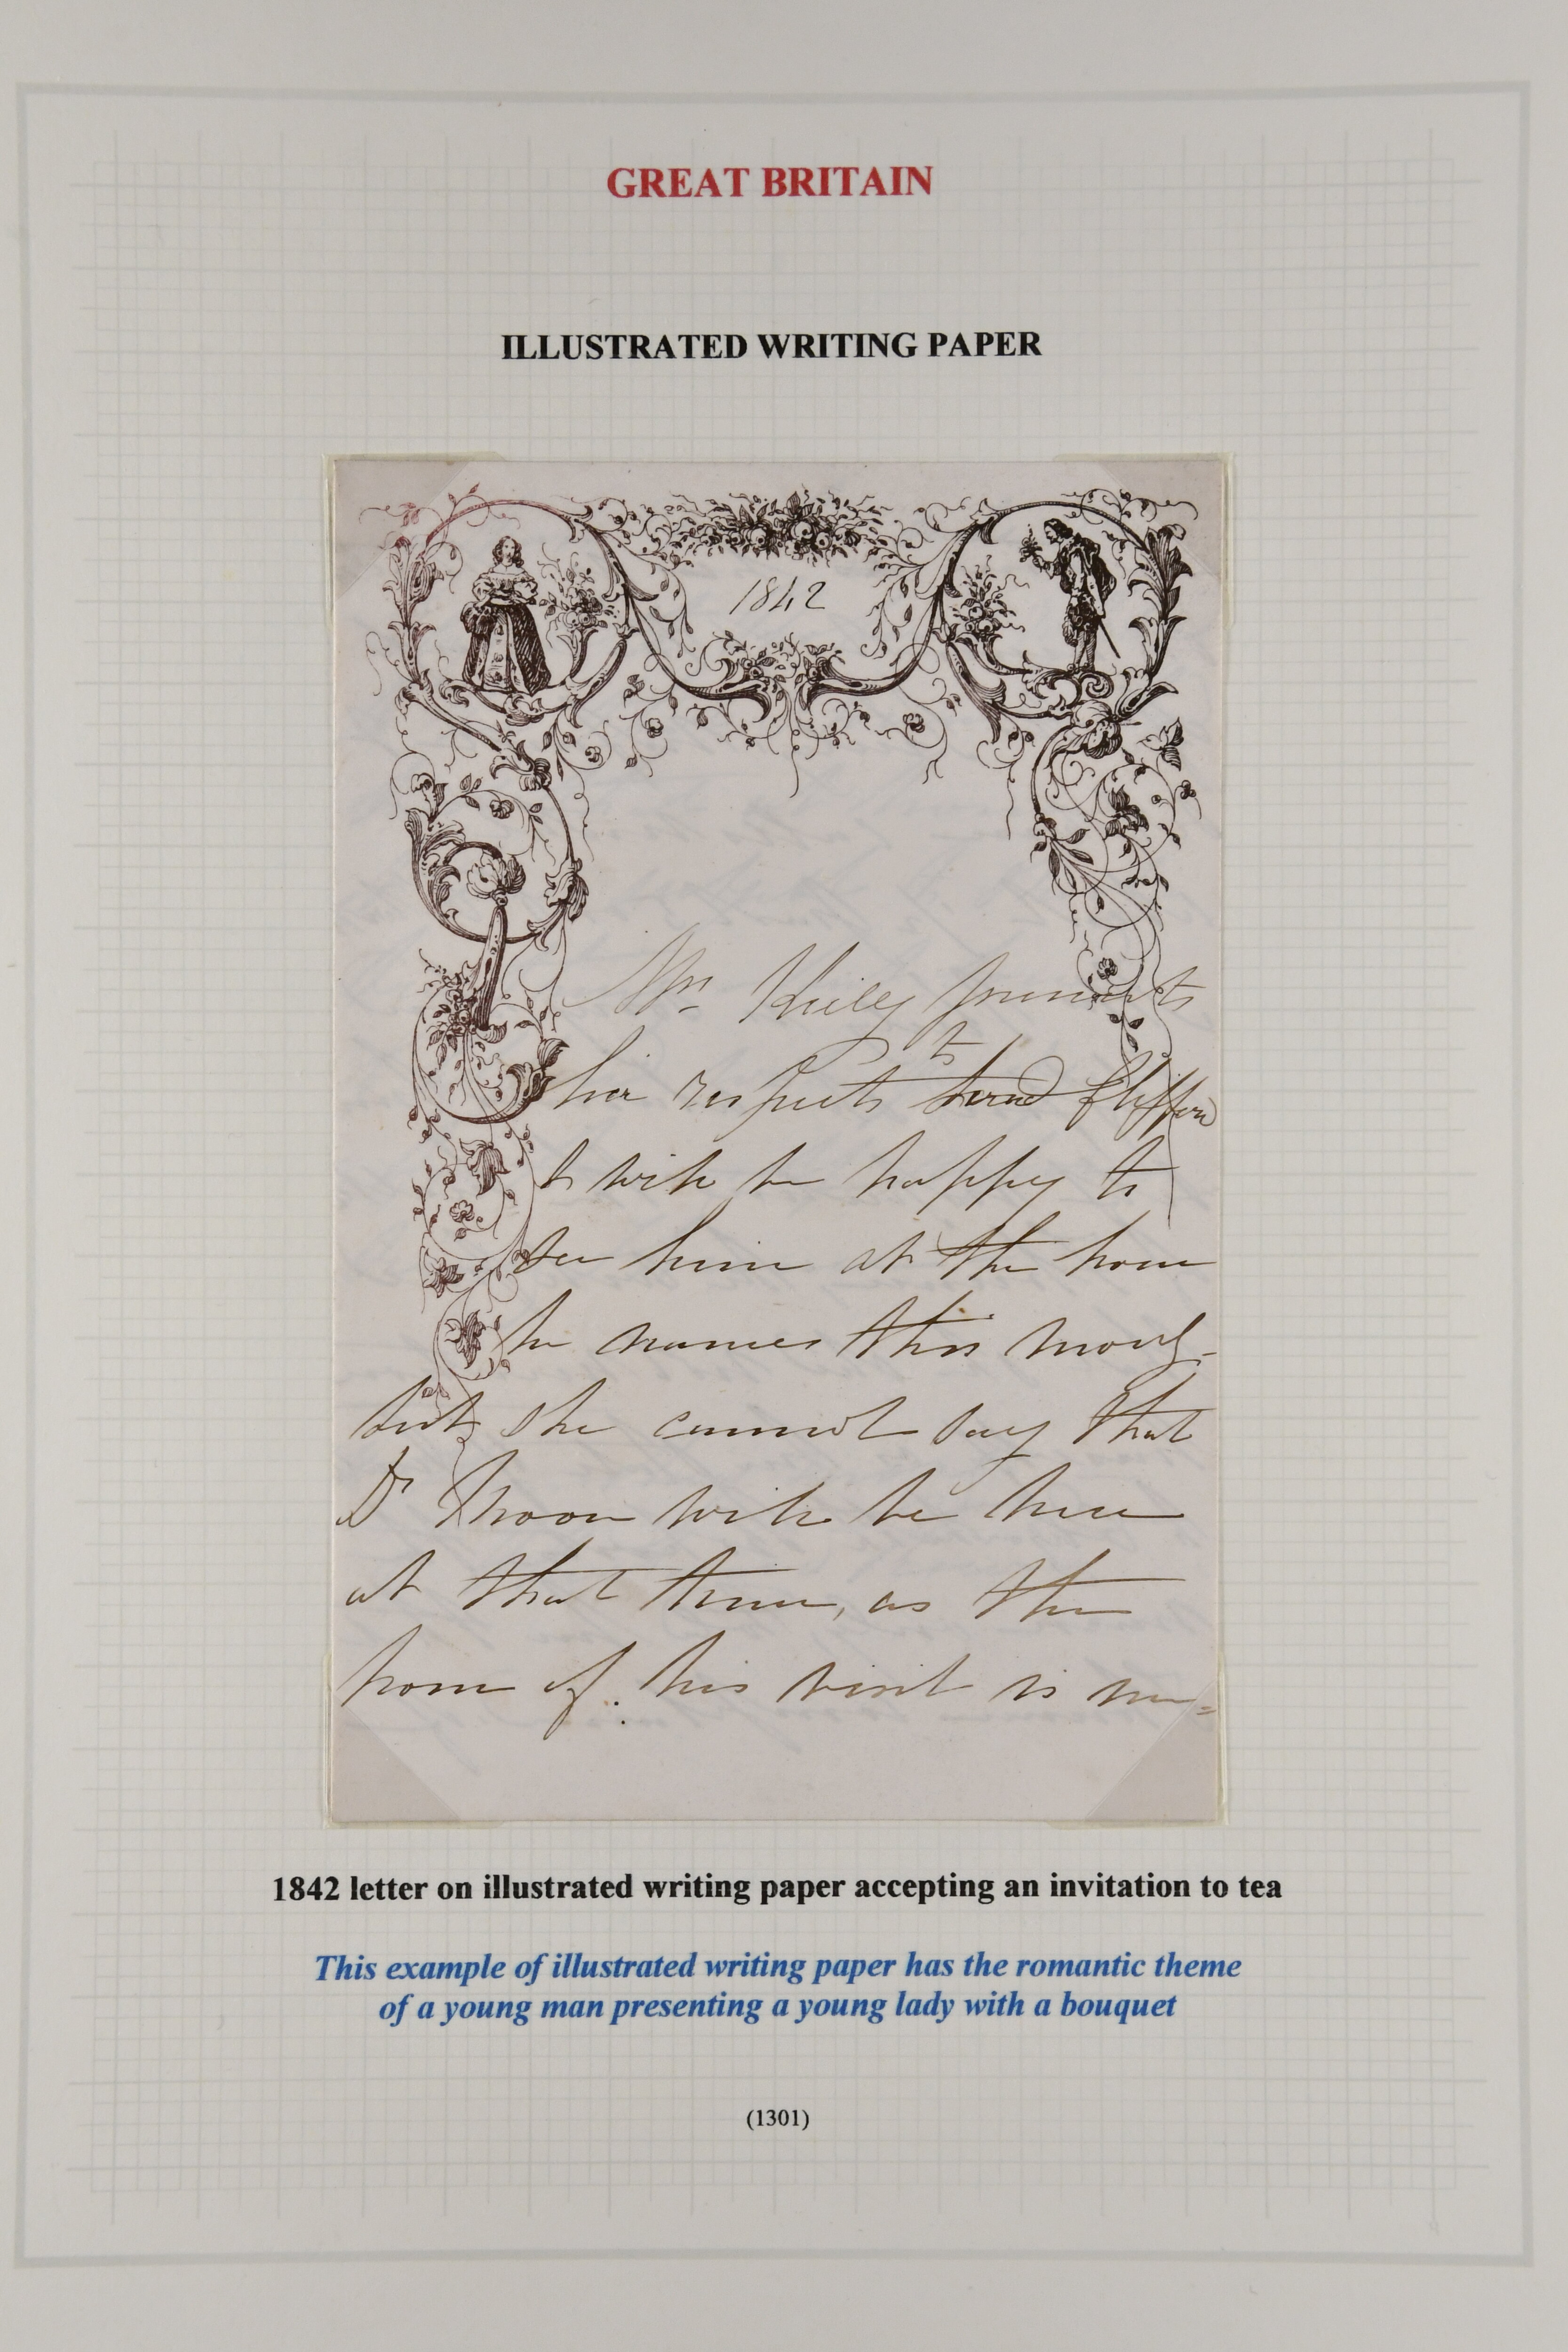 GREAT BRITAIN
ILLUSTRATED WRITING PAPER
1842
Mrs presents
her respects to Clifford
& will be happy to
see him at the hour
he names this
but she cannot say that
Dr Moon will be here
at that time, as the
hour of his visit is un=
1842 letter on illustrated writing paper accepting an invitation to tea
This example of illustrated writing paper has the romantic theme
of a young man presenting a young lady with a bouquet
(1301)